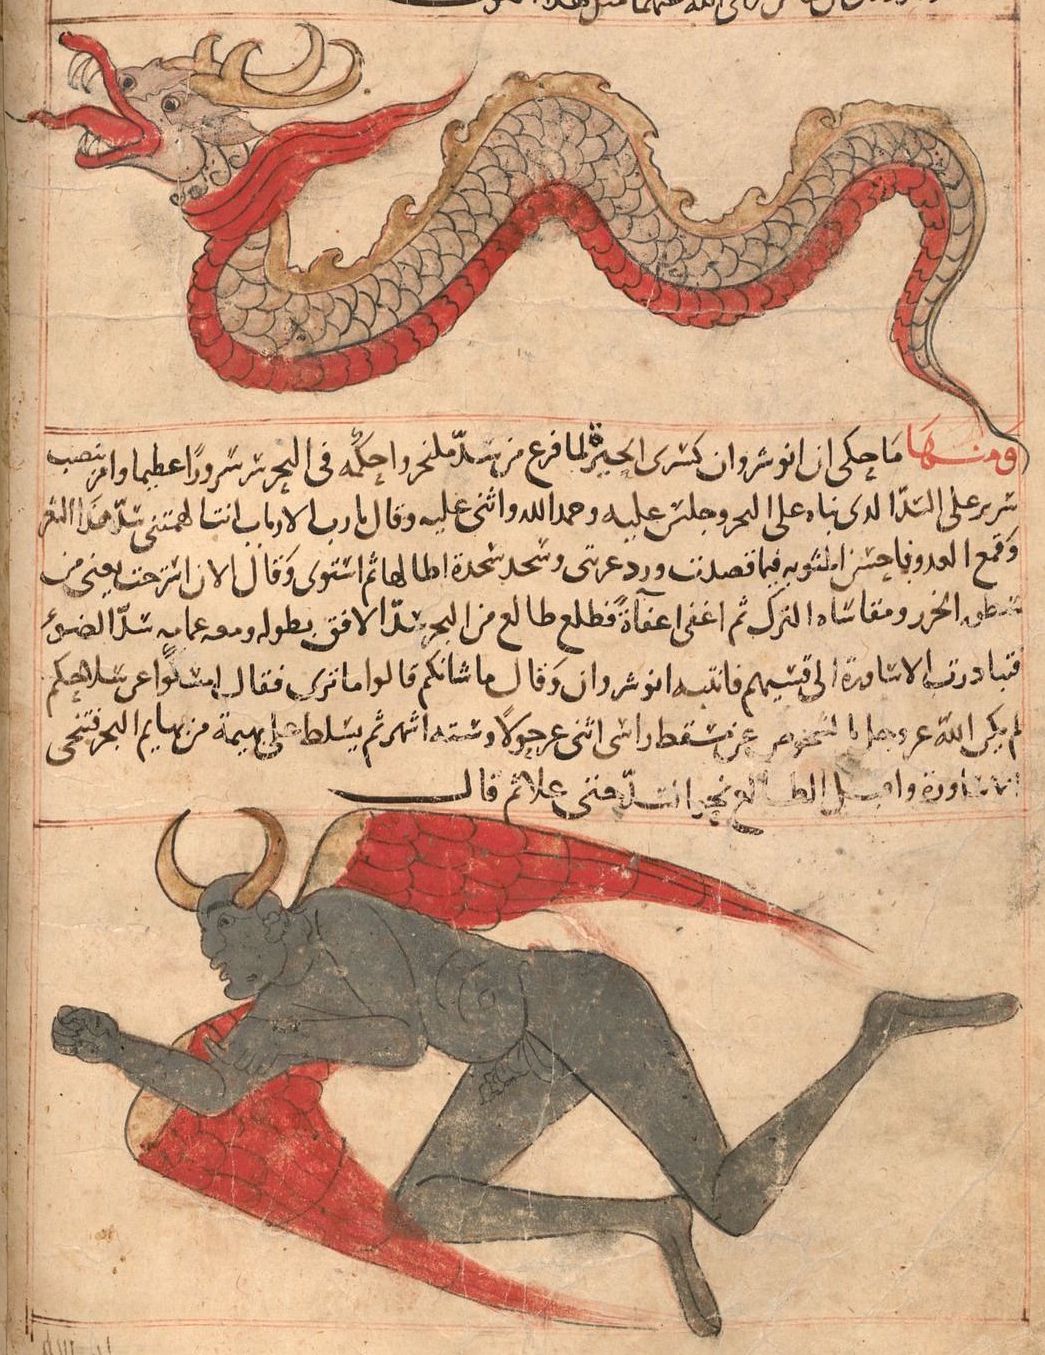 ومنها ما حكى ان انوشروان كسرى الخير لما فرغ من سد ملنجر واحكمه فى البحر سر سرورا عظيما وامر بنصب
سرير على السد الدى بناه على البحر وجلس عليه وحمد الله واثنى عليه وقال يا رب الارباب انت الهمتنى سد هذا الثغر
وقمع العدو فاحسن المثوبه فيما قصدت ورد عربتى وسجد سجدة اطالها ثم استوى وقال الان استرحت يعنى من
سطوه الخزر ومقاساه الترك ثم اغفى اغفاة فطلع طالع من البحر سد الافق بطوله ومعه غمامه سد الضوء
فتبادرت الاساورة الى قسيهم فانتبه انوشروان وقال ما شانكم قالوا ما ترى فقال امسكوا عن سلاحكم
لم يكن الله عز وجل من مسقط راسى اثنى عشر حولا وسته اشهر ثم يسلط على بهيمة من بهايم البحر فتنحى
الاساورة واقبل الطالع نحو السد حتى علا ثم قال